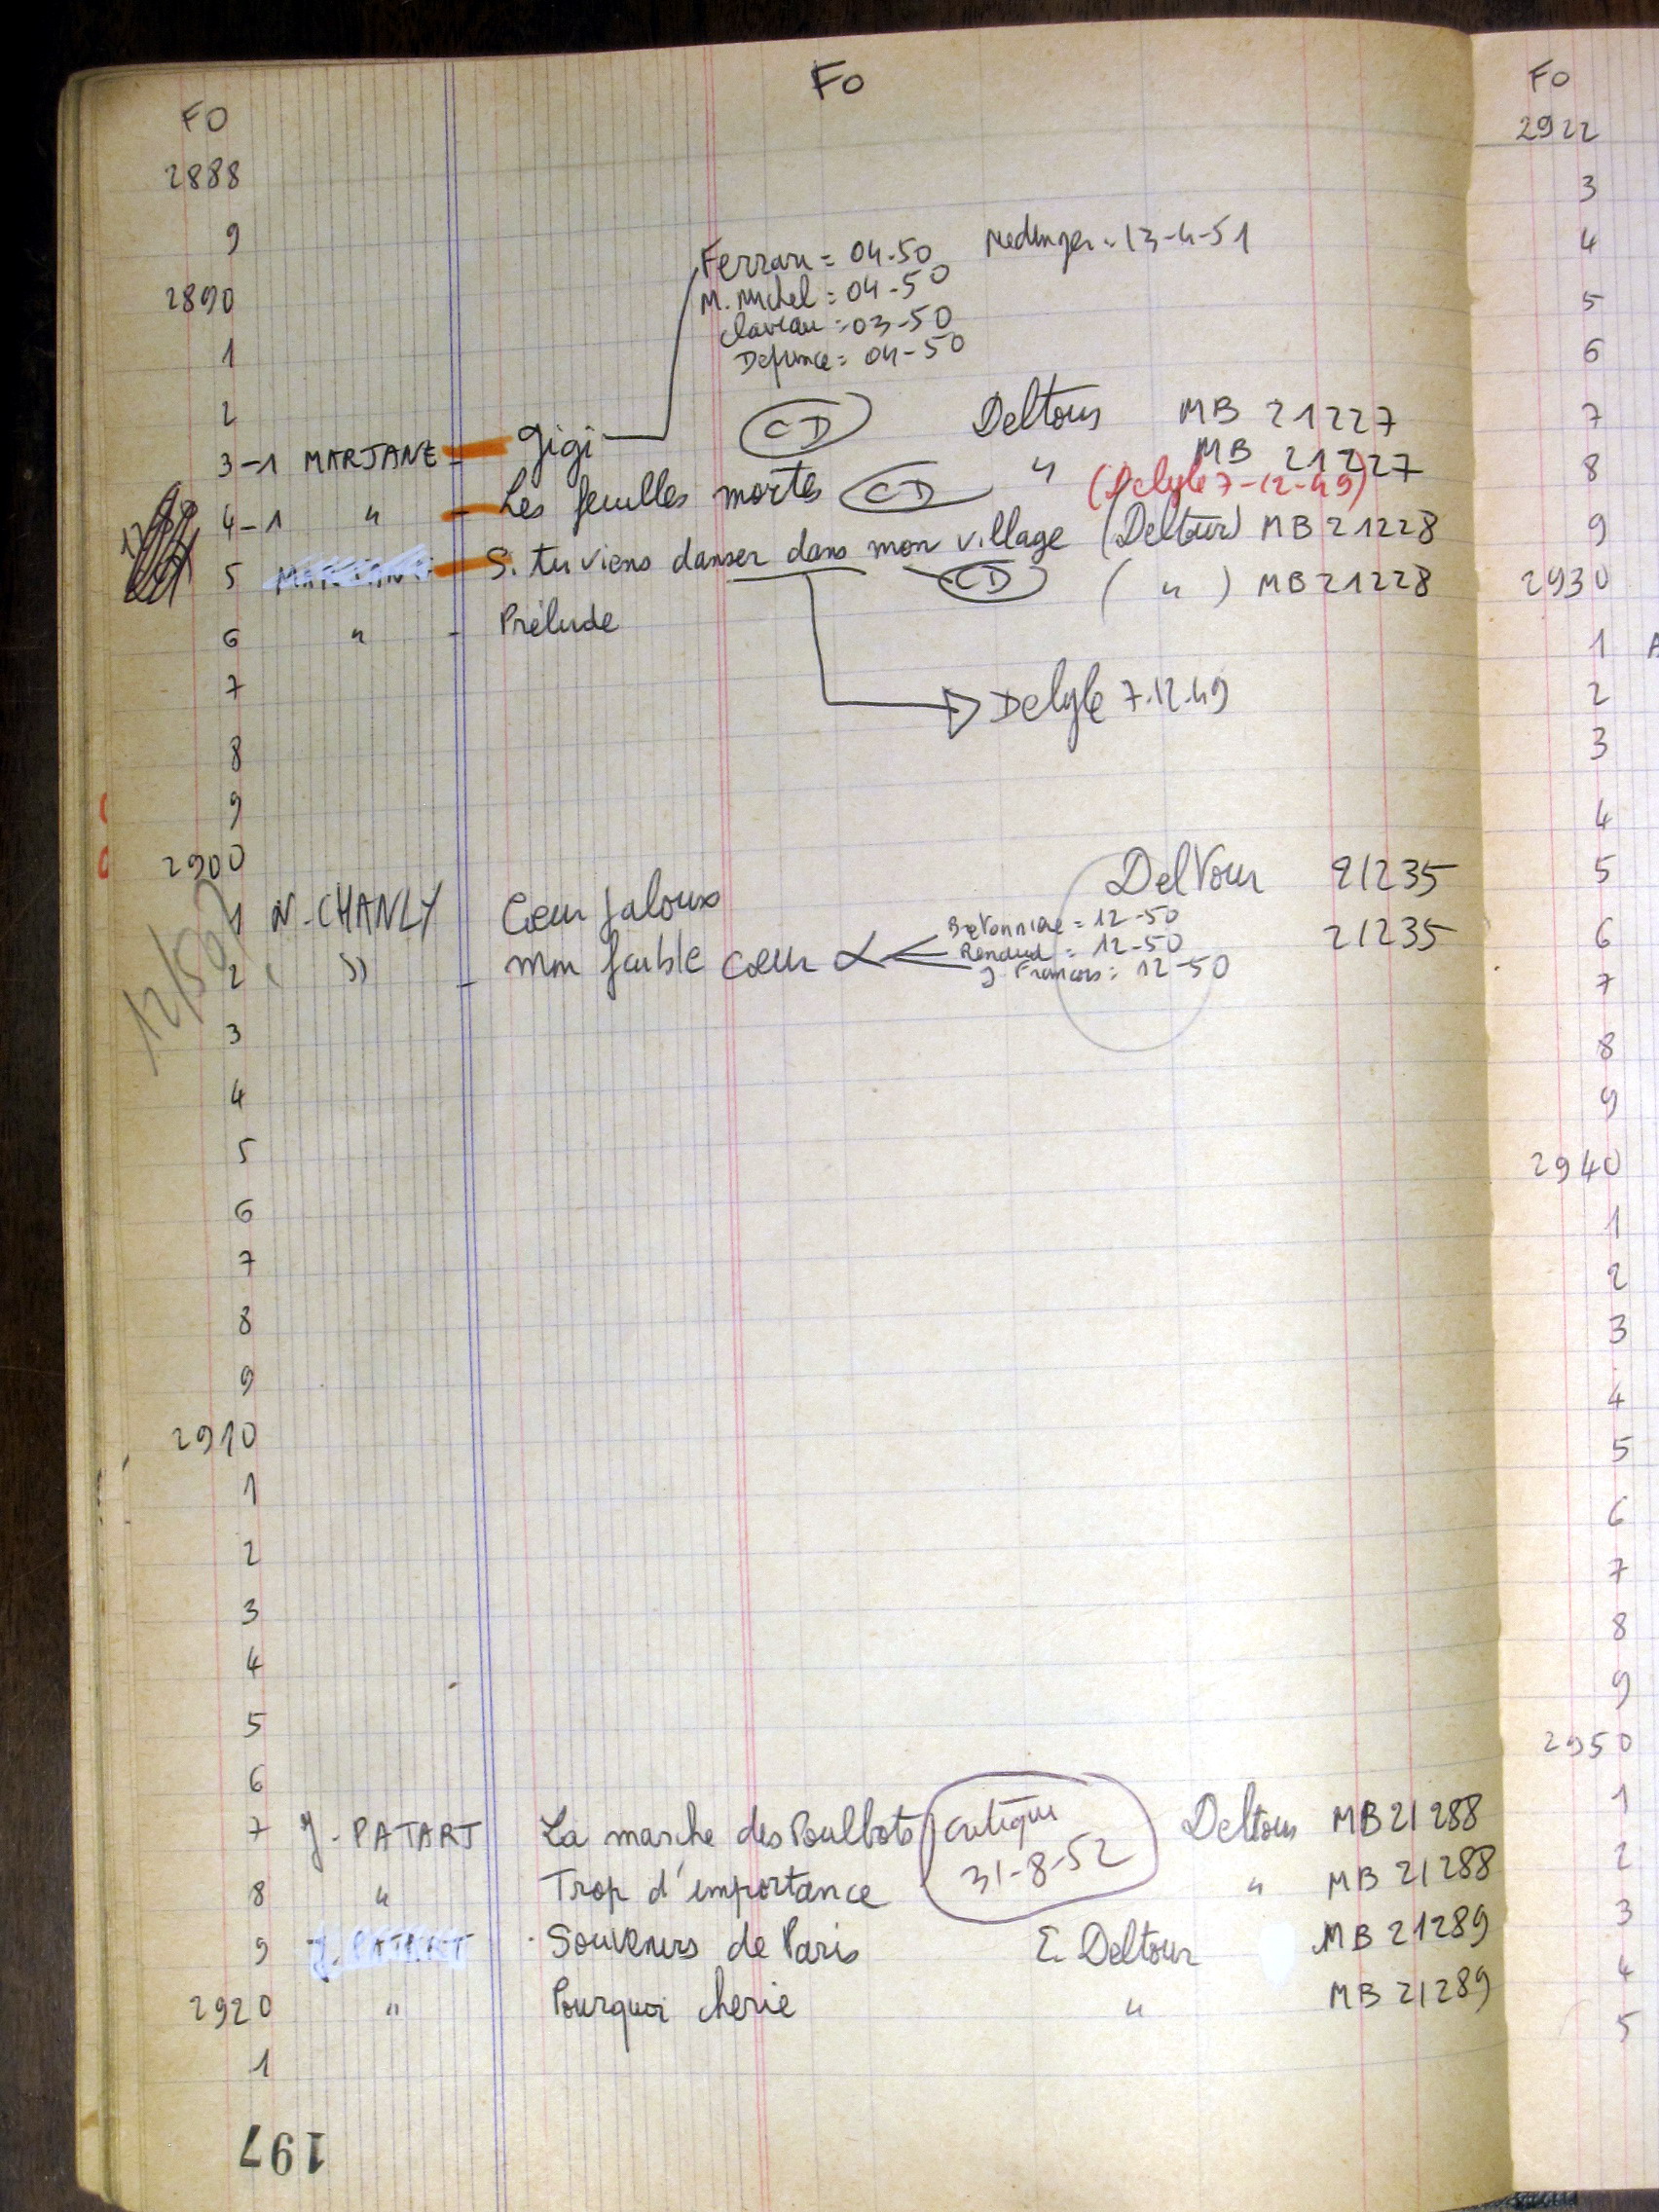 Fo
FO
2888
9
2890
1
2
Ferrari = 04-50
M. Michel = 04-50
Claveau = 03-50
Defrance = 04-50
13-4-51
3-1 MARJANE - Gigi CD Deltour MB 21227
4-1 " - Les feuilles mortes CD " MB 21227
(Delyle 7-12-49)
5 - Si tu viens danser dans mon village (Deltour) MB 21228
6 " - Prélude CD ( " ) MB 21228
7
Delyle 7.12.49
8
9
2900
12/50?
1 N. CHANLY Coeur jaloux Deltour 21235
2 " - mon faible coeur 21235
Bretonnière = 12-50
Renaud = 12-50
J Francois = 12-50
3
4
5
6
7
8
9
2910
1
2
3
4
5
6
7 J. PATART La marche des Poulbots Deltour MB 21288
critique
31-8-52
8 " Trop d'importance " MB 21288
9 J. PATART Souvenirs de Paris E. Deltour MB 21289
2920 " Pourquoi cherie " MB 21289
1
197
FO
2922
3
4
5
6
7
8
9
2930
1 A
2
3
4
5
6
7
8
9
2940
1
2
3
4
5
6
7
8
9
2950
1
2
3
4
5